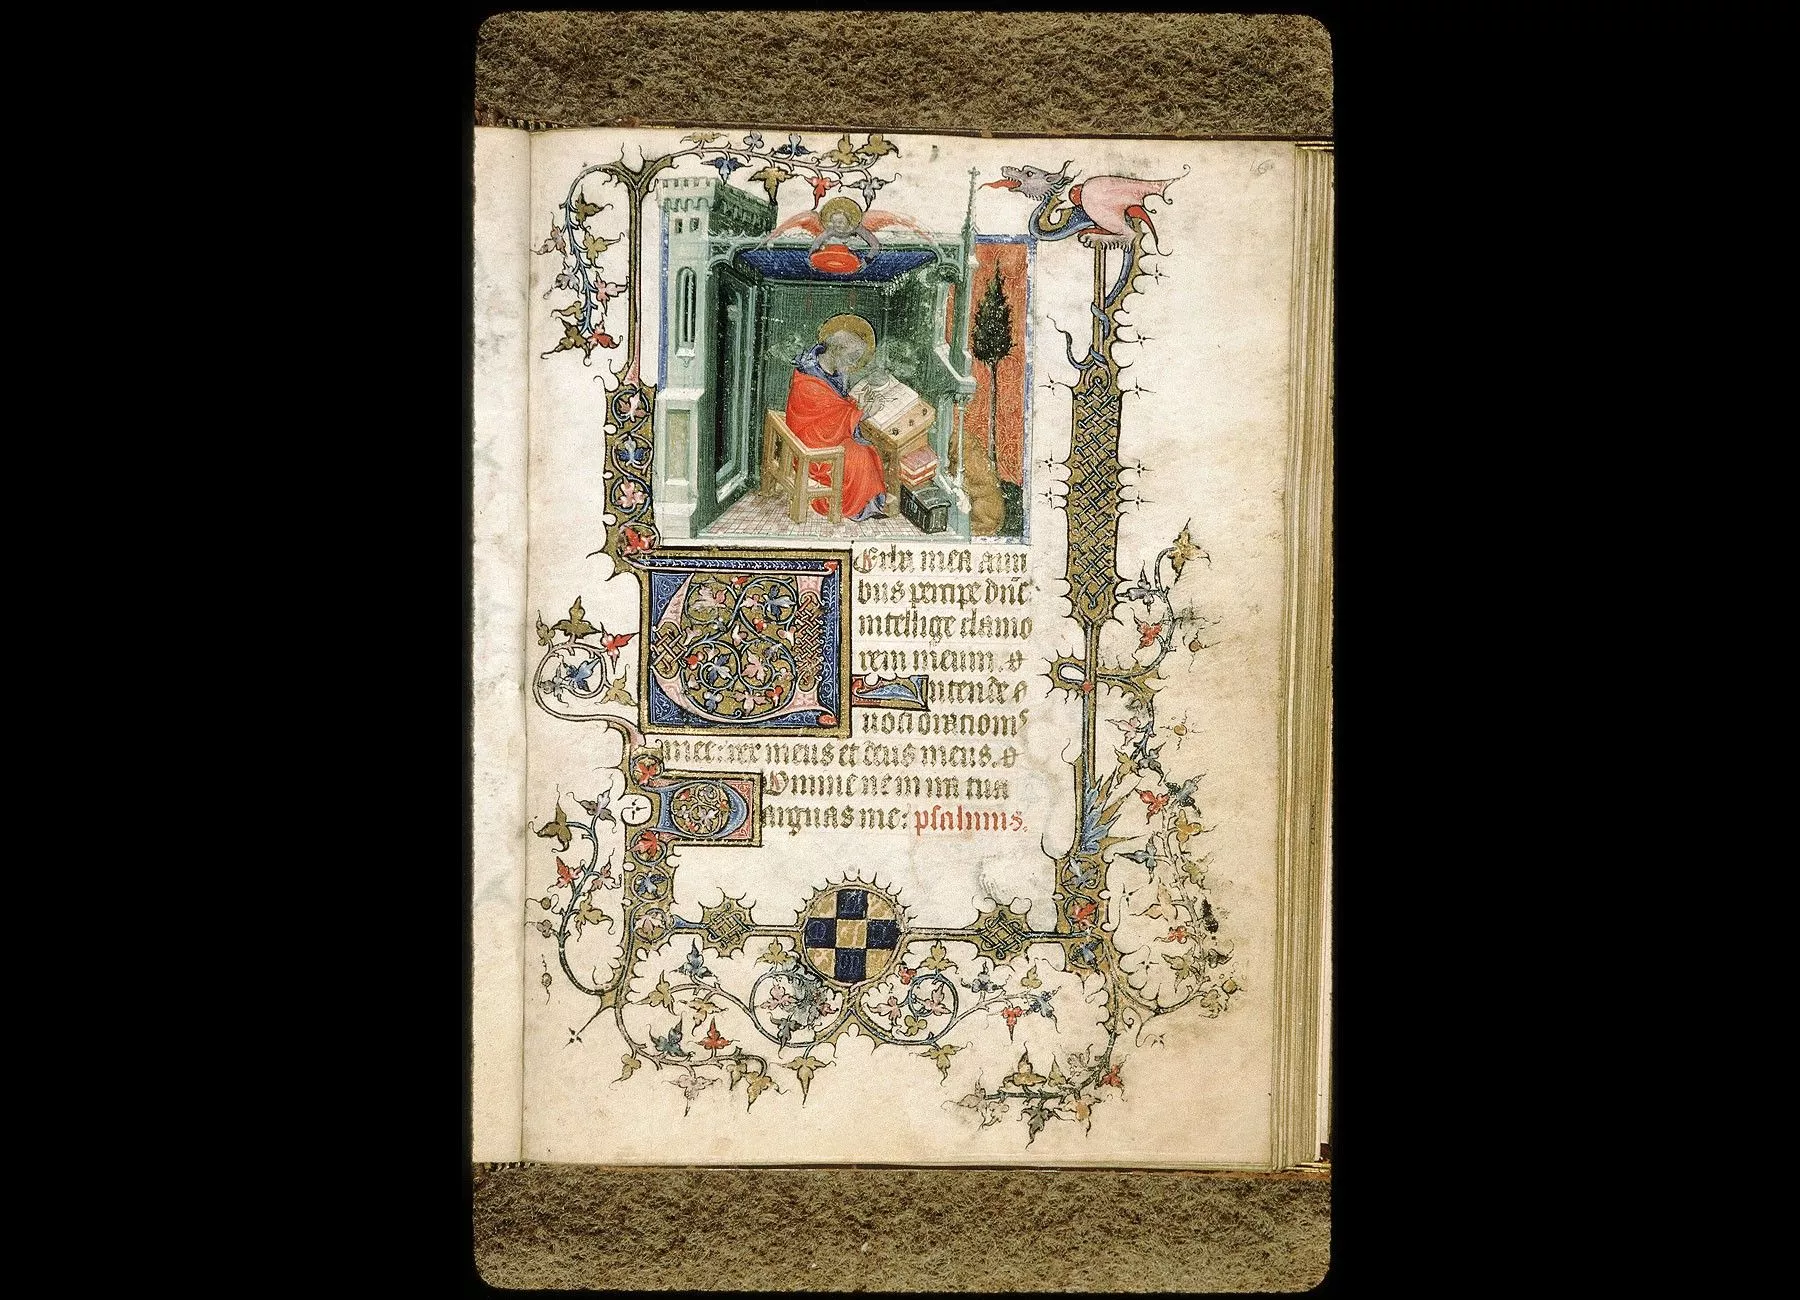 Verba mea auri
bus percipe dn̄e
intellige clamo
rem meum. et
Intende
uoci orationis
mee: rex meus et deus meus. et
Domine ne in ira tua
arguas me: psalmus.